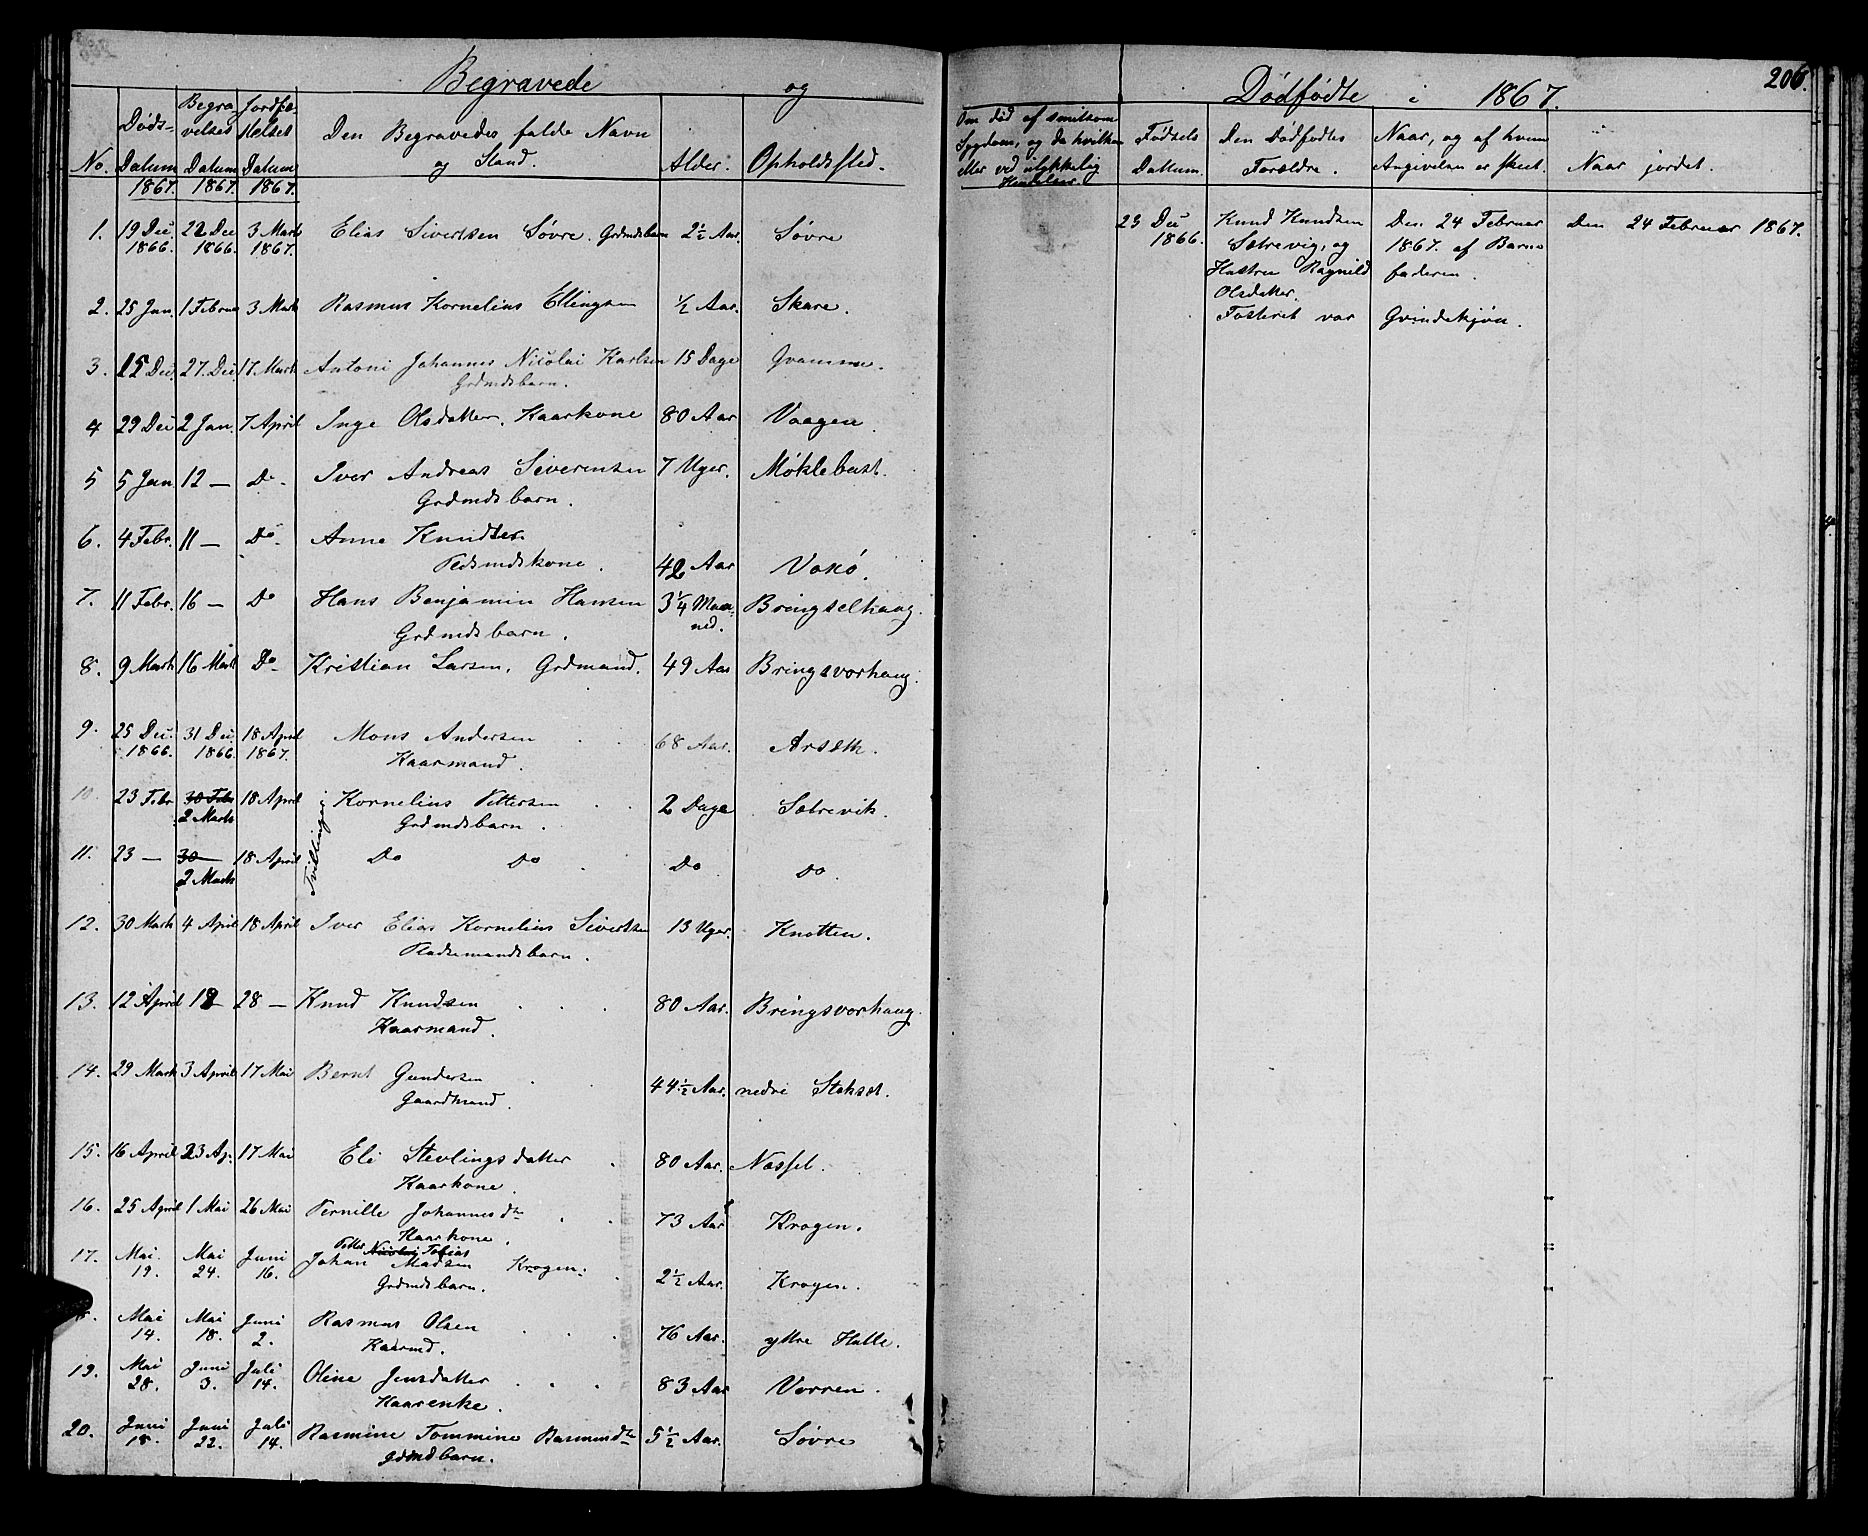 Begravede og
No. Døds-Datum 1867. Begravelses Datum 1867. Jordfæstelses Datum 1867. Den Begravedes fulde Navn og Stand. Alder. Opholdssted.
1. 19 Dec 1866. 22 Dec 1866. 3 Marts 1867. Elias Sivertsen Søvre. Grdmdsbarn 2½ Aar. Søvre
2. 25 Jan. 1 Februar 3 Marts Rasmus Kornelius Ellingsen ½ Aar. Skare.
3. 15 Dec. 27. Dec. 17 Marts Antoni Johannes Nicolai Karlsen 15 Dage Gvamme.
Grdmdsbarn.
4 29 Dec 2 Jan. 7 April Inge Olsdatter. Kaarkone 80 Aar Vaagen.
5 5 Jan 12 — Do - Iver Andreas Severinsen 7 Uger. Møklebust.
Grdmdsbarn.
6. 4 Febr. 11 — Do - Anne Knudtsdr.
Pldsmdskone. 42 Aar Vokø.
7. 11 Febr. 16 — Do Hans Benjamin Hansen 3¼ Maaned. Bringselhaug.
Grdmdsbarn.
8. 9 Marts 16 Marts Do - Kristian Larsen, Grdmand. 49 Aar Bringsvorhaug.
9. 25 Dec. 1866. 31 Dec 1866. 18 April 1867. Mons Andersen 68 Aar. Arseth.
Kaarmand.
10. 23 Febr 30 Febr 2 Marts 18 April Tvillinger Kornelius Pettersen 2 Dage Sætrevik.
Grdmdsbarn.
11. 23 — 30 — 2 Marts 18 April Do Do Do Do.
12. 30 Marts 4 April 18 April Iver Elias Kornelius Sivertsen 13 Uger. Knotten.
Pladsemandsbarn.
13. 12 April 18 28 — Knud Knudsen 80 Aar. Bringsvorhaug.
Kaarmand.
14. 29 Marts 3 April 17 Mai Bernt Gundersen 44½ Aar. nedre Stokset.
Gaardmand.
15. 16 April 23 Ap. 17 Mai Eli Stevlingsdatter 80 Aar. Næsset.
Kaarkone.
16. 25 April 1 Mai 26 Mai Pernille Johannesdtr 73 Aar Krogen.
Kaarkone.
Petter Nicolai Tobias
17. Mai 19. Mai 24. Juni 16. Johan Madsen Krogen. 2½ Aar. Krogen.
Grdmdsbarn.
Mai 14. Mai 18. Juni 2. Rasmus Olsen 76 Aar. yttre Halle.
Kaarmd.
19. Mai 28. Juni 3. Juli 14. Oline Jensdatter 83 Aar Vorren.
Kaarenke.
20. Juni 18. Juni 22. Juli 14. Rasmine Tommine Rasmusdtr 5½ Aar. Søvre
Grdmdbarn.
Dødfødte i 1867. 206.
Om død af smitsom Sygdom, og da hvilken eller ved ulykkelig Hændelse. Fødsels Dattum. Den Dødfødtes Forældre. Naar, og af hvem Angivelsen er skeet. Naar jordet.
23 Dec 1866. Knud Knudsen Den 24 Februar Den 24 Februar 1867.
Sætrevig, og 1867. af Barne
Hustru Ragnild faderen.
Olsdatter.
Fosteret var Qvindekjøn.